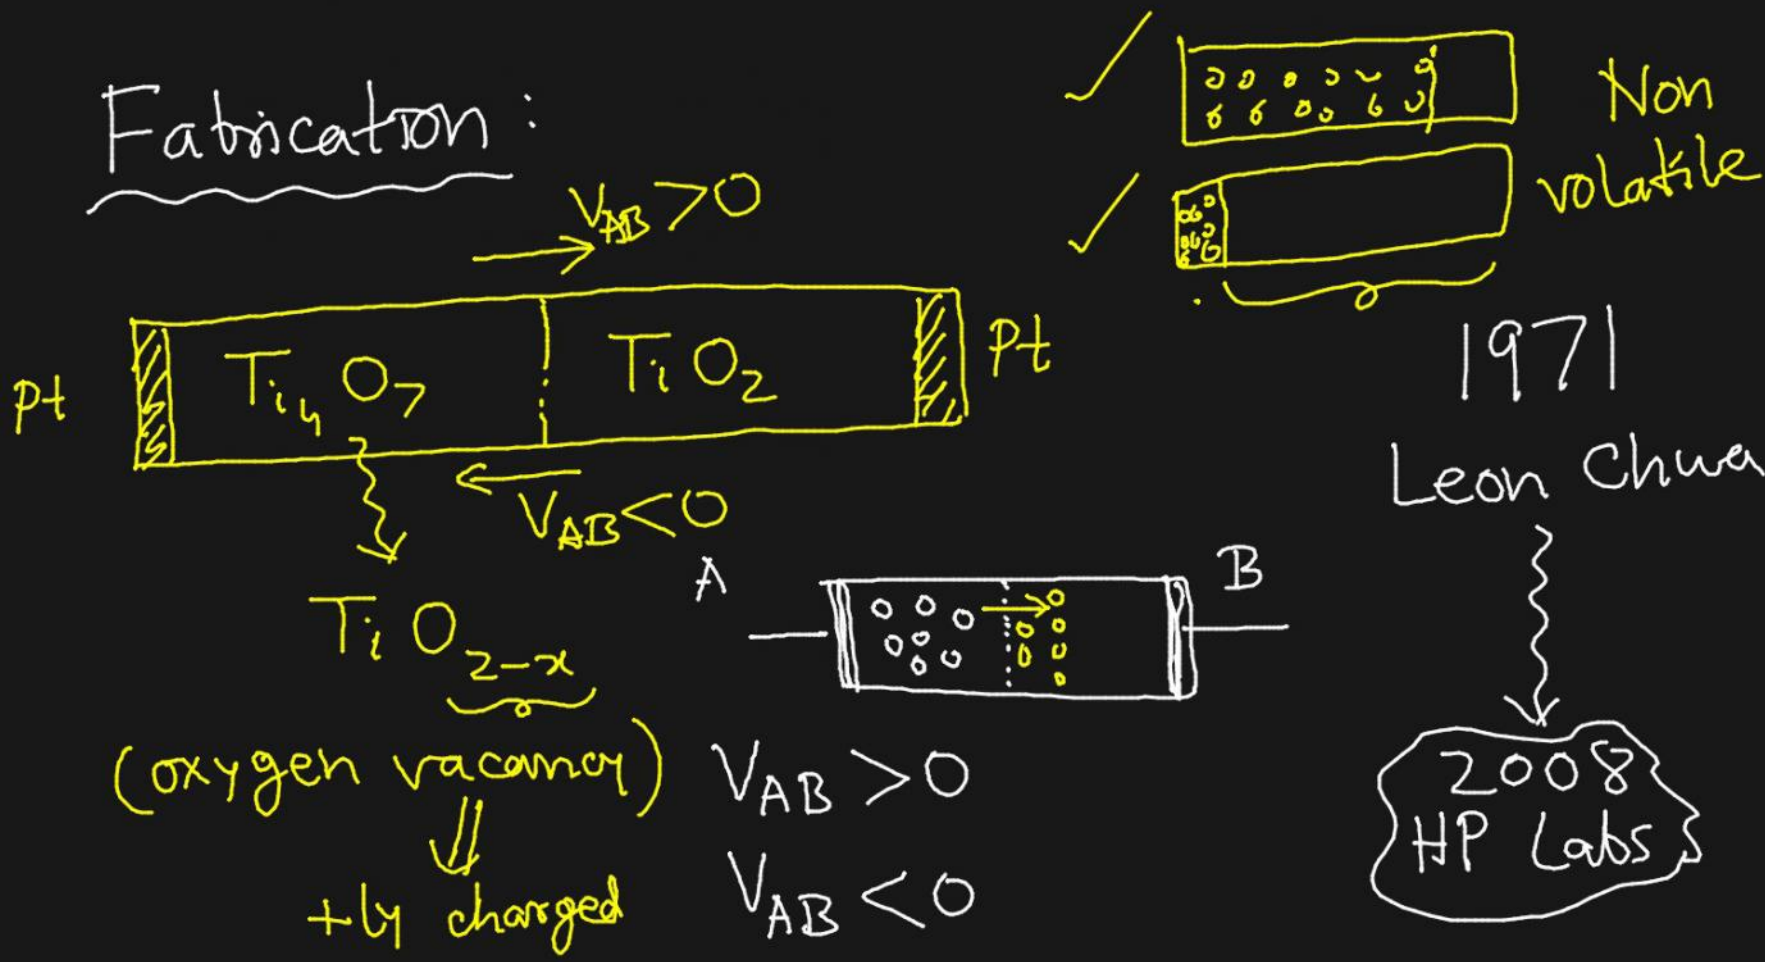 Fabrication :
Non
volatile
V_AB > 0
Pt
Ti₄ O₇
Ti O₂
Pt
V_AB < 0
1971
Leon Chua
Ti O_2-x
A
B
(oxygen vacancy)
+ly charged
V_AB > 0
V_AB < 0
2008
HP Labs